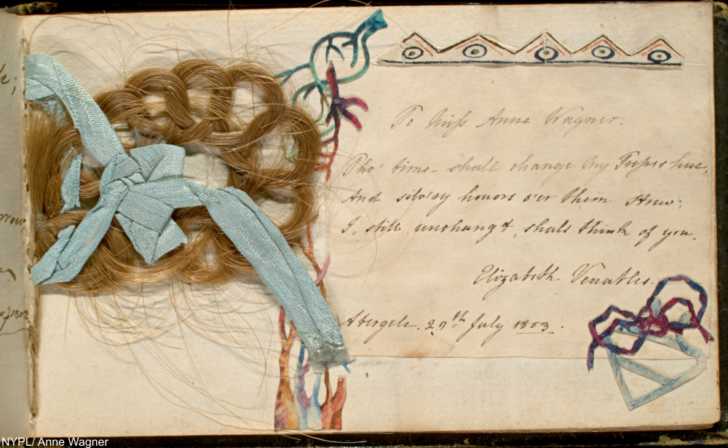 To Miss Anne Wagner.
Tho' time shall change thy Tresses hue,
And silv'ry honors o'er them strew;
I, still unchang'd, shall think of you.
Elizabeth Venables.
Abergele. July 1803.
NYPL/ Anne Wagner